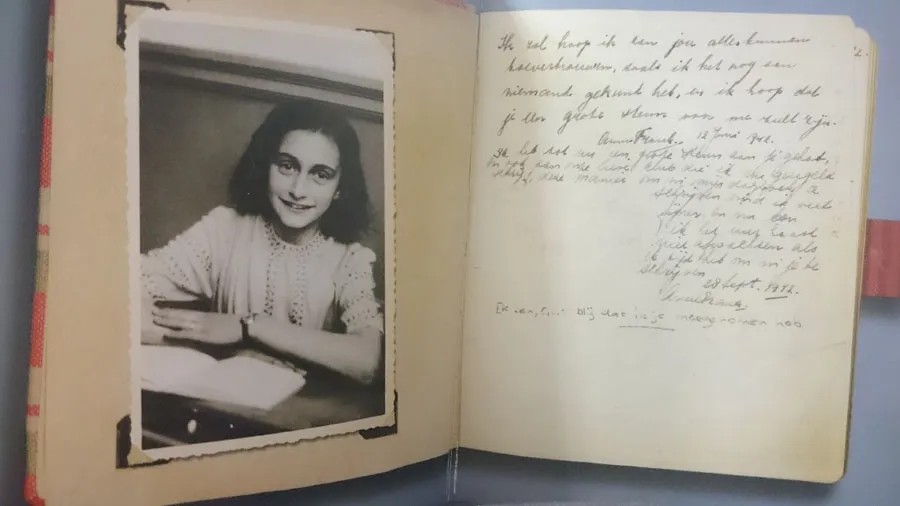 Ik zal hoop ik aan jou alles kunnen
toevertrouwen, zoals ik het nog aan
niemand gekund heb, en ik hoop dat
je een grote steun voor me zult zijn.
Anne Frank. 12 Juni 1942.
Ik heb tot nu een grote steun aan je gehad,
en ook aan onze lieve club die ik nu geregeld
schrijf, deze manier om in mijn dagboek te
schrijven vind ik veel
fijner en nu kan
ik het uur haast
niet afwachten als
ik tijd heb om in je te
schrijven
28 Sept. 1942.
Anne Frank.
Ik ben, blij dat ik je meegenomen heb